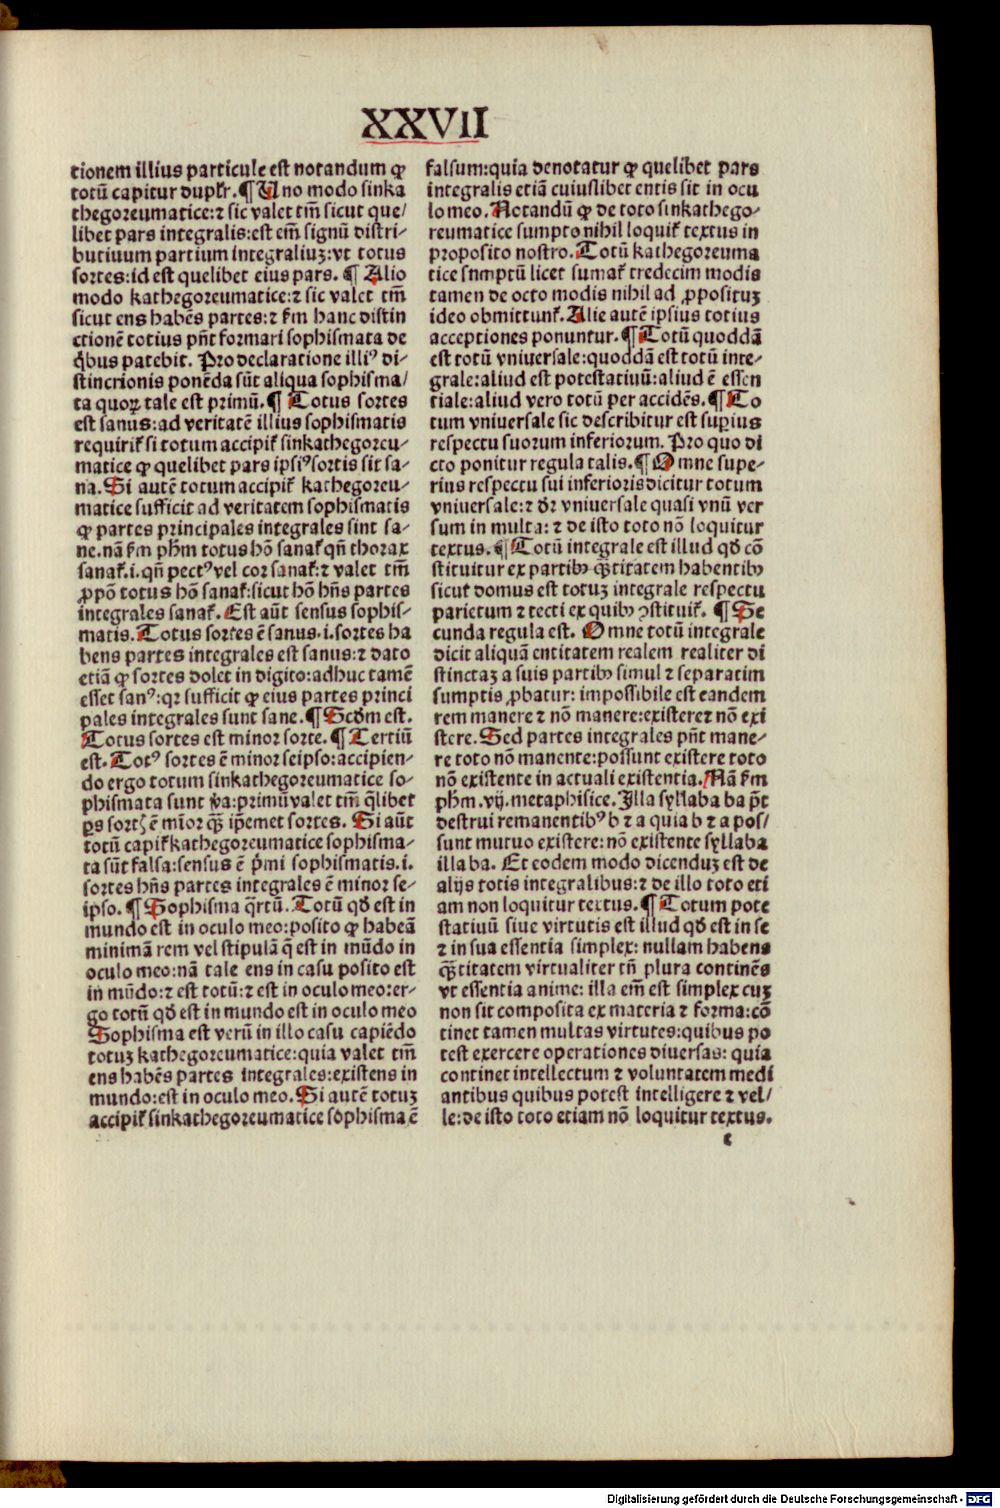 XXVII
tionem illius particule est notandum ꝙ
totū capitur duplr̄. ¶ Uno modo sinka
thegoreumatice: ⁊ sic valet tm̄ sicut que/
libet pars integralis: est em̄ signū distri-
butiuum partium integraliuꝫ: vt totus
sortes: id est quelibet eius pars. ¶ Alio
modo kathegoreumatice: ⁊ sic valet tm̄
sicut ens habēs partes: ⁊ ẜm hanc distin
ctionē totius pn̄t formari sophismata de
qͥbus patebit. Pro declaratione illiꝰ di-
stincrionis ponēda sūt aliqua sophisma/
ta quoꝝ tale est primū. ¶ Totus sortes
est sanus: ad veritatē illius sophismatis
requirit᷑ si totum accipit᷑ sinkathegoreu-
matice ꝙ quelibet pars ipsiꝰ sortis sit sa-
na. Si autē totum accipit᷑ kathegoreu-
matice sufficit ad veritatem sophismatis
ꝙ partes principales integrales sint sa-
ne. nā ẜm ph̄m totus hō sanat᷑ qn̄ thorax
sanat᷑ .i. qn̄ pectꝰ vel cor sanat᷑: ⁊ valet tm̄
ꝓpō totus hō sanat᷑: sicut hō hn̄s partes
integrales sanat᷑. Est aūt sensus sophis-
matis. Totus sortes ē sanus .i. sortes ha
bens partes integrales est sanus: ⁊ dato
etiā ꝙ sortes dolet in digito: adhuc tamē
esset sanꝰ: qꝛ sufficit ꝙ eius partes princi
pales integrales sunt sane. ¶ Scd̄m est.
Totus sortes est minor sorte. ¶ Tertiū
est. Totꝰ sortes ē minor seipso: accipien-
do ergo totum sinkathegoreumatice so-
phismata sunt v̄a: primū valet tm̄ q̄libet
ꝑs sort̄ ē mīor qꝫ̄ ip̄emet sortes. Si aūt
totū capit᷑ kathegoreumatice sophisma-
ta sūt falsa: sensus ē pͥmi sophismatis .i.
sortes hn̄s partes integrales ē minor se-
ipso. ¶ Sophisma qͣrtū. Totū qd̄ est in
mundo est in oculo meo: posito ꝙ habeā
minimā rem vel stipulā q̄ est in mūdo in
oculo meo: nā tale ens in casu posito est
in mūdo: ⁊ est totū: ⁊ est in oculo meo: er-
go totū qd̄ est in mundo est in oculo meo
Sophisma est verū in illo casu capiēdo
totuꝫ kathegoreumatice: quia valet tm̄
ens habēs partes integrales: existens in
mundo: est in oculo meo. Si autē totuꝫ
accipit᷑ sinkathegoreumatice sophisma ē
falsum: quia denotatur ꝙ quelibet pars
integralis etiā cuiuslibet entis sit in ocu
lo meo. Notandū ꝙ de toto sinkathego-
reumatice sumpto nihil loquit᷑ textus in
proposito nostro. Totū kathegoreuma
tice snmptū licet sumat᷑ tredecim modis
tamen de octo modis nihil ad ꝓpositꝫ
ideo obmittunt᷑. Alie autē ipsius totius
acceptiones ponuntur. ¶ Totū quoddā
est totū vniversale: quoddā est totū inte-
grale: aliud est potestatiuū: aliud ē essen
tiale: aliud vero totū per accidēs. ¶ To
tum vniuersale sic describitur est suꝑius
respectu suorum inferiorum. Pro quo di
cto ponitur regula talis. ¶ Omne supe-
rius respectu sui inferioris dicitur totum
vniuersale: ⁊ dr̄ vniuersale quasi vnū ver
sum in multa: ⁊ de isto toto nō loquitur
textus. ¶ Totū integrale est illud qd̄ cō
stituitur ex partibꝰ qꝫ̄titatem habentibꝰ
sicut domus est totuꝫ integrale respectu
parietum ⁊ tecti ex quibꝰ ꝯstituit᷑. ¶ Se
cunda regula est. Omne totū integrale
dicit aliquā entitatem realem realiter di
stinctaꝫ a suis partibꝰ simul ⁊ separatim
sumptis ꝓbatur: impossibile est eandem
rem manere ⁊ nō manere: existere ⁊ nō exi
stere. Sed partes integrales pn̄t mane-
re toto nō manente: possunt existere toto
nō existente in actuali existentia. Nā ẜm
ph̄m .vij. metaphisice. Illa syllaba ba pōt
destrui remanentibꝰ b ⁊ a quia b ⁊ a pos/
sunt mutuo existere: nō existente syllaba
illa ba. Et eodem modo dicenduꝫ est de
alijs totis integralibus: ⁊ de illo toto eti
am non loquitur textus. ¶ Totum pote
statiuū siue virtutis est illud qd̄ est in se
⁊ in sua essentia simplex: nullam habens
qꝫ̄titatem virtualiter tn̄ plura continēs
vt essentia anime: illa em̄ est simplex cuꝫ
non sit composita ex materia ⁊ forma: cō
tinet tamen multas virtutes: quibus po
test exercere operationes diuersas: quia
continet intellectum ⁊ voluntatem medi
antibus quibus potest intelligere ⁊ vel/
le: de isto toto etiam nō loquitur textus.
c
Digitalisierung gefördert durch die Deutsche Forschungsgemeinschaft - DFG